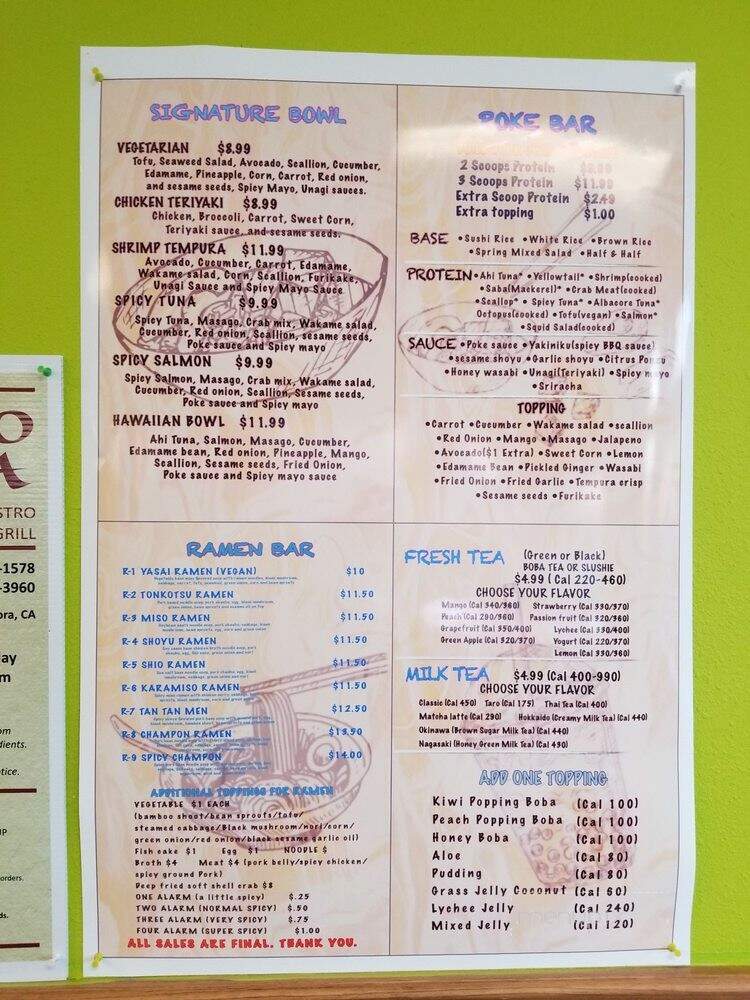 SIGNATURE BOWL
VEGETARIAN $8.99
Tofu, Seaweed Salad, Avocado, Scallion, Cucumber,
Edamame, Pineapple, Corn, Carrot, Red onion,
and sesame seeds, Spicy Mayo, Unagi sauces.
CHICKEN TERIYAKI $8.99
Chicken, Broccoli, Carrot, Sweet Corn,
Teriyaki sauce, and sesame seeds.
SHRIMP TEMPURA $11.99
Avocado, Cucumber, Carrot, Edamame,
Wakame salad, Corn, Scallion, Furikake,
Unagi Sauce and Spicy Mayo Sauce
SPICY TUNA $9.99
Spicy Tuna, Masago, Crab mix, Wakame salad,
Cucumber, Red onion, Scallion, sesame seeds,
Poke sauce and Spicy mayo
SPICY SALMON $9.99
Spicy Salmon, Masago, Crab mix, Wakame salad,
Cucumber, Red onion, Scallion, Sesame seeds,
Poke sauce and Spicy mayo
HAWAIIAN BOWL $11.99
Ahi Tuna, Salmon, Masago, Cucumber,
Edamame bean, Red onion, Pineapple, Mango,
Scallion, Sesame seeds, Fried Onion,
Poke sauce and Spicy mayo sauce
POKE BAR
2 Scoops Protein
3 Scoops Protein $11.99
Extra Scoop Protein $2.49
Extra topping $1.00
BASE •Sushi Rice •White Rice •Brown Rice
•Spring Mixed Salad •Half & Half
PROTEIN •Ahi Tuna* •Yellowtail* •Shrimp(cooked)
•Saba(Mackerel)* •Crab Meat(cooked)
•Scallop* • Spicy Tuna* •Albacore Tuna*
Octopus(cooked) •Tofu(vegan) •Salmon*
•Squid Salad(cooked)
SAUCE •Poke sauce •Yakiniku(spicy BBQ sauce)
•sesame shoyu •Garlic shoyu •Citrus Ponzu
•Honey wasabi •Unagi(Teriyaki) •Spicy mayo
•Sriracha
TOPPING
•Carrot •Cucumber •Wakame salad •scallion
•Red Onion •Mango •Masago •Jalapeno
•Avocado($1 Extra) •Sweet Corn •Lemon
•Edamame Bean •Pickled Ginger •Wasabi
•Fried Onion •Fried Garlic •Tempura crisp
•Sesame seeds •Furikake
RAMEN BAR
R-1 YASAI RAMEN (VEGAN) $10
R-2 TONKOTSU RAMEN $11.50
R-3 MISO RAMEN $11.50
R-4 SHOYU RAMEN $11.50
R-5 SHIO RAMEN $11.50
R-6 KARAMISO RAMEN $11.50
R-7 TAN TAN MEN $12.50
R-8 CHAMPON RAMEN $13.50
R-9 SPICY CHAMPON $14.00
ADDITIONAL TOPPINGS FOR RAMEN
VEGETABLE $1 EACH
(bamboo shoot/bean sprouts/tofu/
steamed cabbage/Black mushroom/nori/corn/
green onion/red onion/black sesame garlic oil)
Fish cake $1 Egg $1 NOODLE $
Broth $4 Meat $4 (pork belly/spicy chicken/
spicy ground Pork)
Deep fried soft shell crab $8
ONE ALARM (a little spicy) $.25
TWO ALARM (NORMAL SPICY) $.50
THREE ALARM (VERY SPICY) $.75
FOUR ALARM (SUPER SPICY) $1.00
ALL SALES ARE FINAL. THANK YOU.
FRESH TEA (Green or Black)
BOBA TEA OR SLUSHIE
$4.99 ( Cal 220-460)
CHOOSE YOUR FLAVOR
Mango (Cal 340/360) Strawberry (Cal 330/370)
Peach (Cal 290/360) Passion fruit (Cal 320/360)
Grapefruit (Cal 350/400) Lychee (Cal 330/400)
Green Apple (Cal 320/370) Yogurt (Cal 220/370)
Lemon (Cal 330/360)
MILK TEA $4.99 (Cal 400-990)
CHOOSE YOUR FLAVOR
Classic (Cal 450) Taro (Cal 175) Thai Tea (Cal 400)
Matcha latte (Cal 290) Hokkaido (Creamy Milk Tea) (Cal 440)
Okinawa (Brown Sugar Milk Tea) (Cal 440)
Nagasaki (Honey Green Milk Tea) (Cal 430)
ADD ONE TOPPING
Kiwi Popping Boba (Cal 100)
Peach Popping Boba (Cal 100)
Honey Boba (Cal 100)
Aloe (Cal 80)
Pudding (Cal 80)
Grass Jelly Coconut (Cal 60)
Lychee Jelly (Cal 240)
Mixed Jelly (Cal 120)
STRO
GRILL
-1578
-3960
ora, CA
ay
m
om
dients.
tice.
IP
orders.
ds.